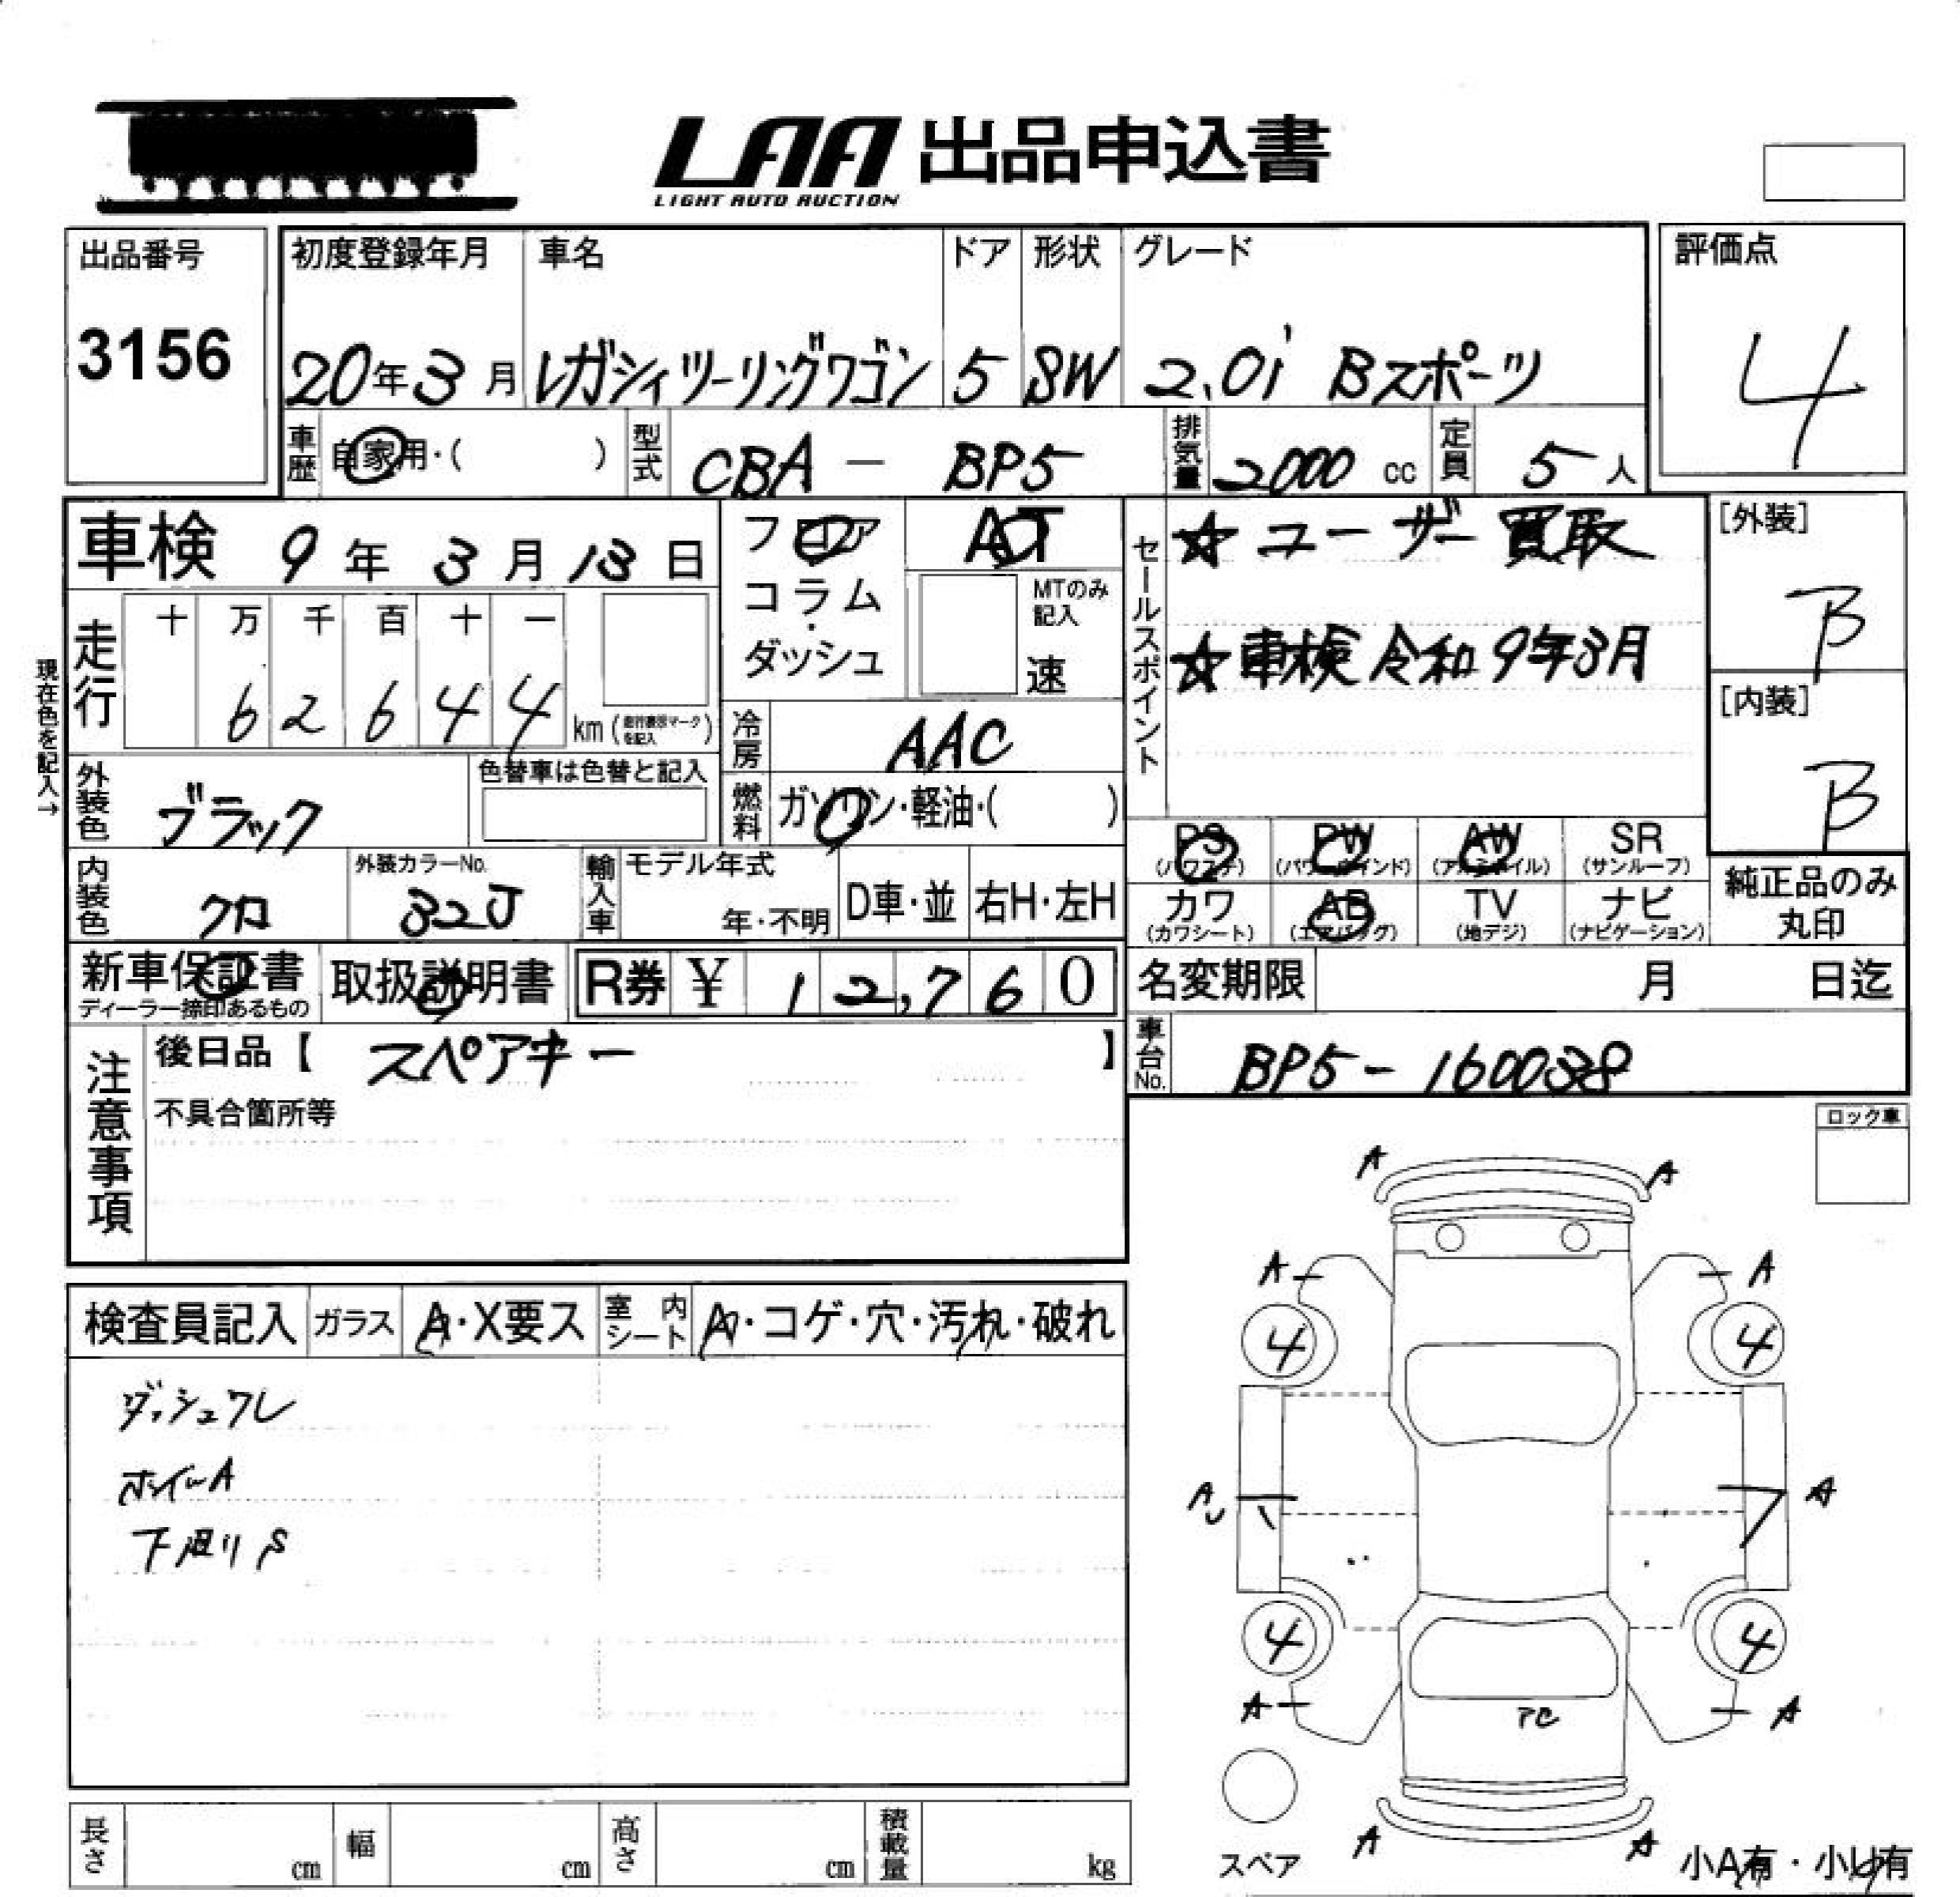 LAA 出品申込書
LIGHT AUTO AUCTION
出品番号
3156
初度登録年月 車名 ドア 形状 グレード
20年3月 レガシィツーリングワゴン 5 SW 2.0i Bスポーツ
評価点
4
車歴 自家用・( ) 型式 CBA - BP5 排気量 2000 cc 定員 5人
車検 9年3月13日
フロア AT
コラム・ダッシュ
MTのみ記入
速
セールスポイント
☆ユーザー買取
☆車検令和9年3月
[外装]
B
[内装]
B
現在色を記入→
走行 十 万 千 百 十 一
6 2 6 4 4 km (走行表示マークを記入)
冷房 AAC
外装色 ブラック
色替車は色替と記入
燃料 ガソリン・軽油・( )
PS (パワステ) PW (パワーウインド) AW (アルミホイル) SR (サンルーフ)
カワ (カワシート) AB (エアバッグ) TV (地デジ) ナビ (ナビゲーション)
純正品のみ丸印
内装色 クロ
外装カラーNo. 32J
輸入車 モデル年式 年・不明 D車・並 右H・左H
新車保証書 ディーラー捺印あるもの
取扱説明書
R券 ¥ 12,760
名変期限 月 日迄
注意事項
後日品【 スペアキー 】
不具合箇所等
車台No. BP5-160038
ロック車
検査員記入 ガラス A・X要ス 室内シート A・コゲ・穴・汚れ・破れ
ダッシュワレ
ホイルA
下廻りS
A A
A A
4 4
A U A
4 4
A A
PC
A A
スペア
小A有・小U有
長さ cm 幅 cm 高さ cm 積載量 kg